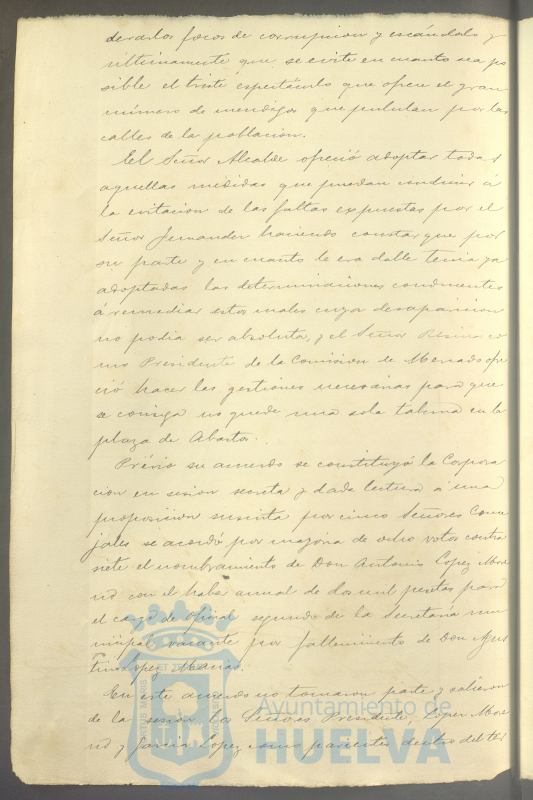 derarlos focos de corrupcion y escándalo y
ultimamente que se evite en cuanto sea po
sible el triste espectáculo que ofrece el gran
número de mendigos que pululan por las
calles de la poblacion.
El Señor Alcalde ofreció adoptar todas
aquellas medidas que puedan conducir á
la evitacion de las faltas expuestas por el
Señor Fernandez haciendo constar que por
su parte y en cuanto le era dable tenia ya
adoptadas las determinaciones conducentes
á remediar estos males cuya desaparicion
no podia ser absoluta, y el Señor co
mo Presidente de la Comision de Mercado ofre
ció hacer las gestiones necesarias para que
se consiga no quede una sola taberna en la
plaza de Abastos.
Prévio su acuerdo se constituyó la Corpora
cion en sesion secreta y dada lectura á una
proposicion suscrita por cinco Señores Conce
jales se acordó por mayoria de ocho votos contra
siete el nombramiento de Don Antonio Lopez More
no con el haber anual de dos mil pesetas para
el cargo de Oficial segundo de la Secretaría mu
nicipal vacante por fallecimiento de Don Agus
tin Lopez Macias.
En este acuerdo no tomaron parte y salieron
de la sesion los Señores Presidente, Lopez More
no y Garcia Lopez como parientes dentro del ter
Ayuntamiento de
HUELVA